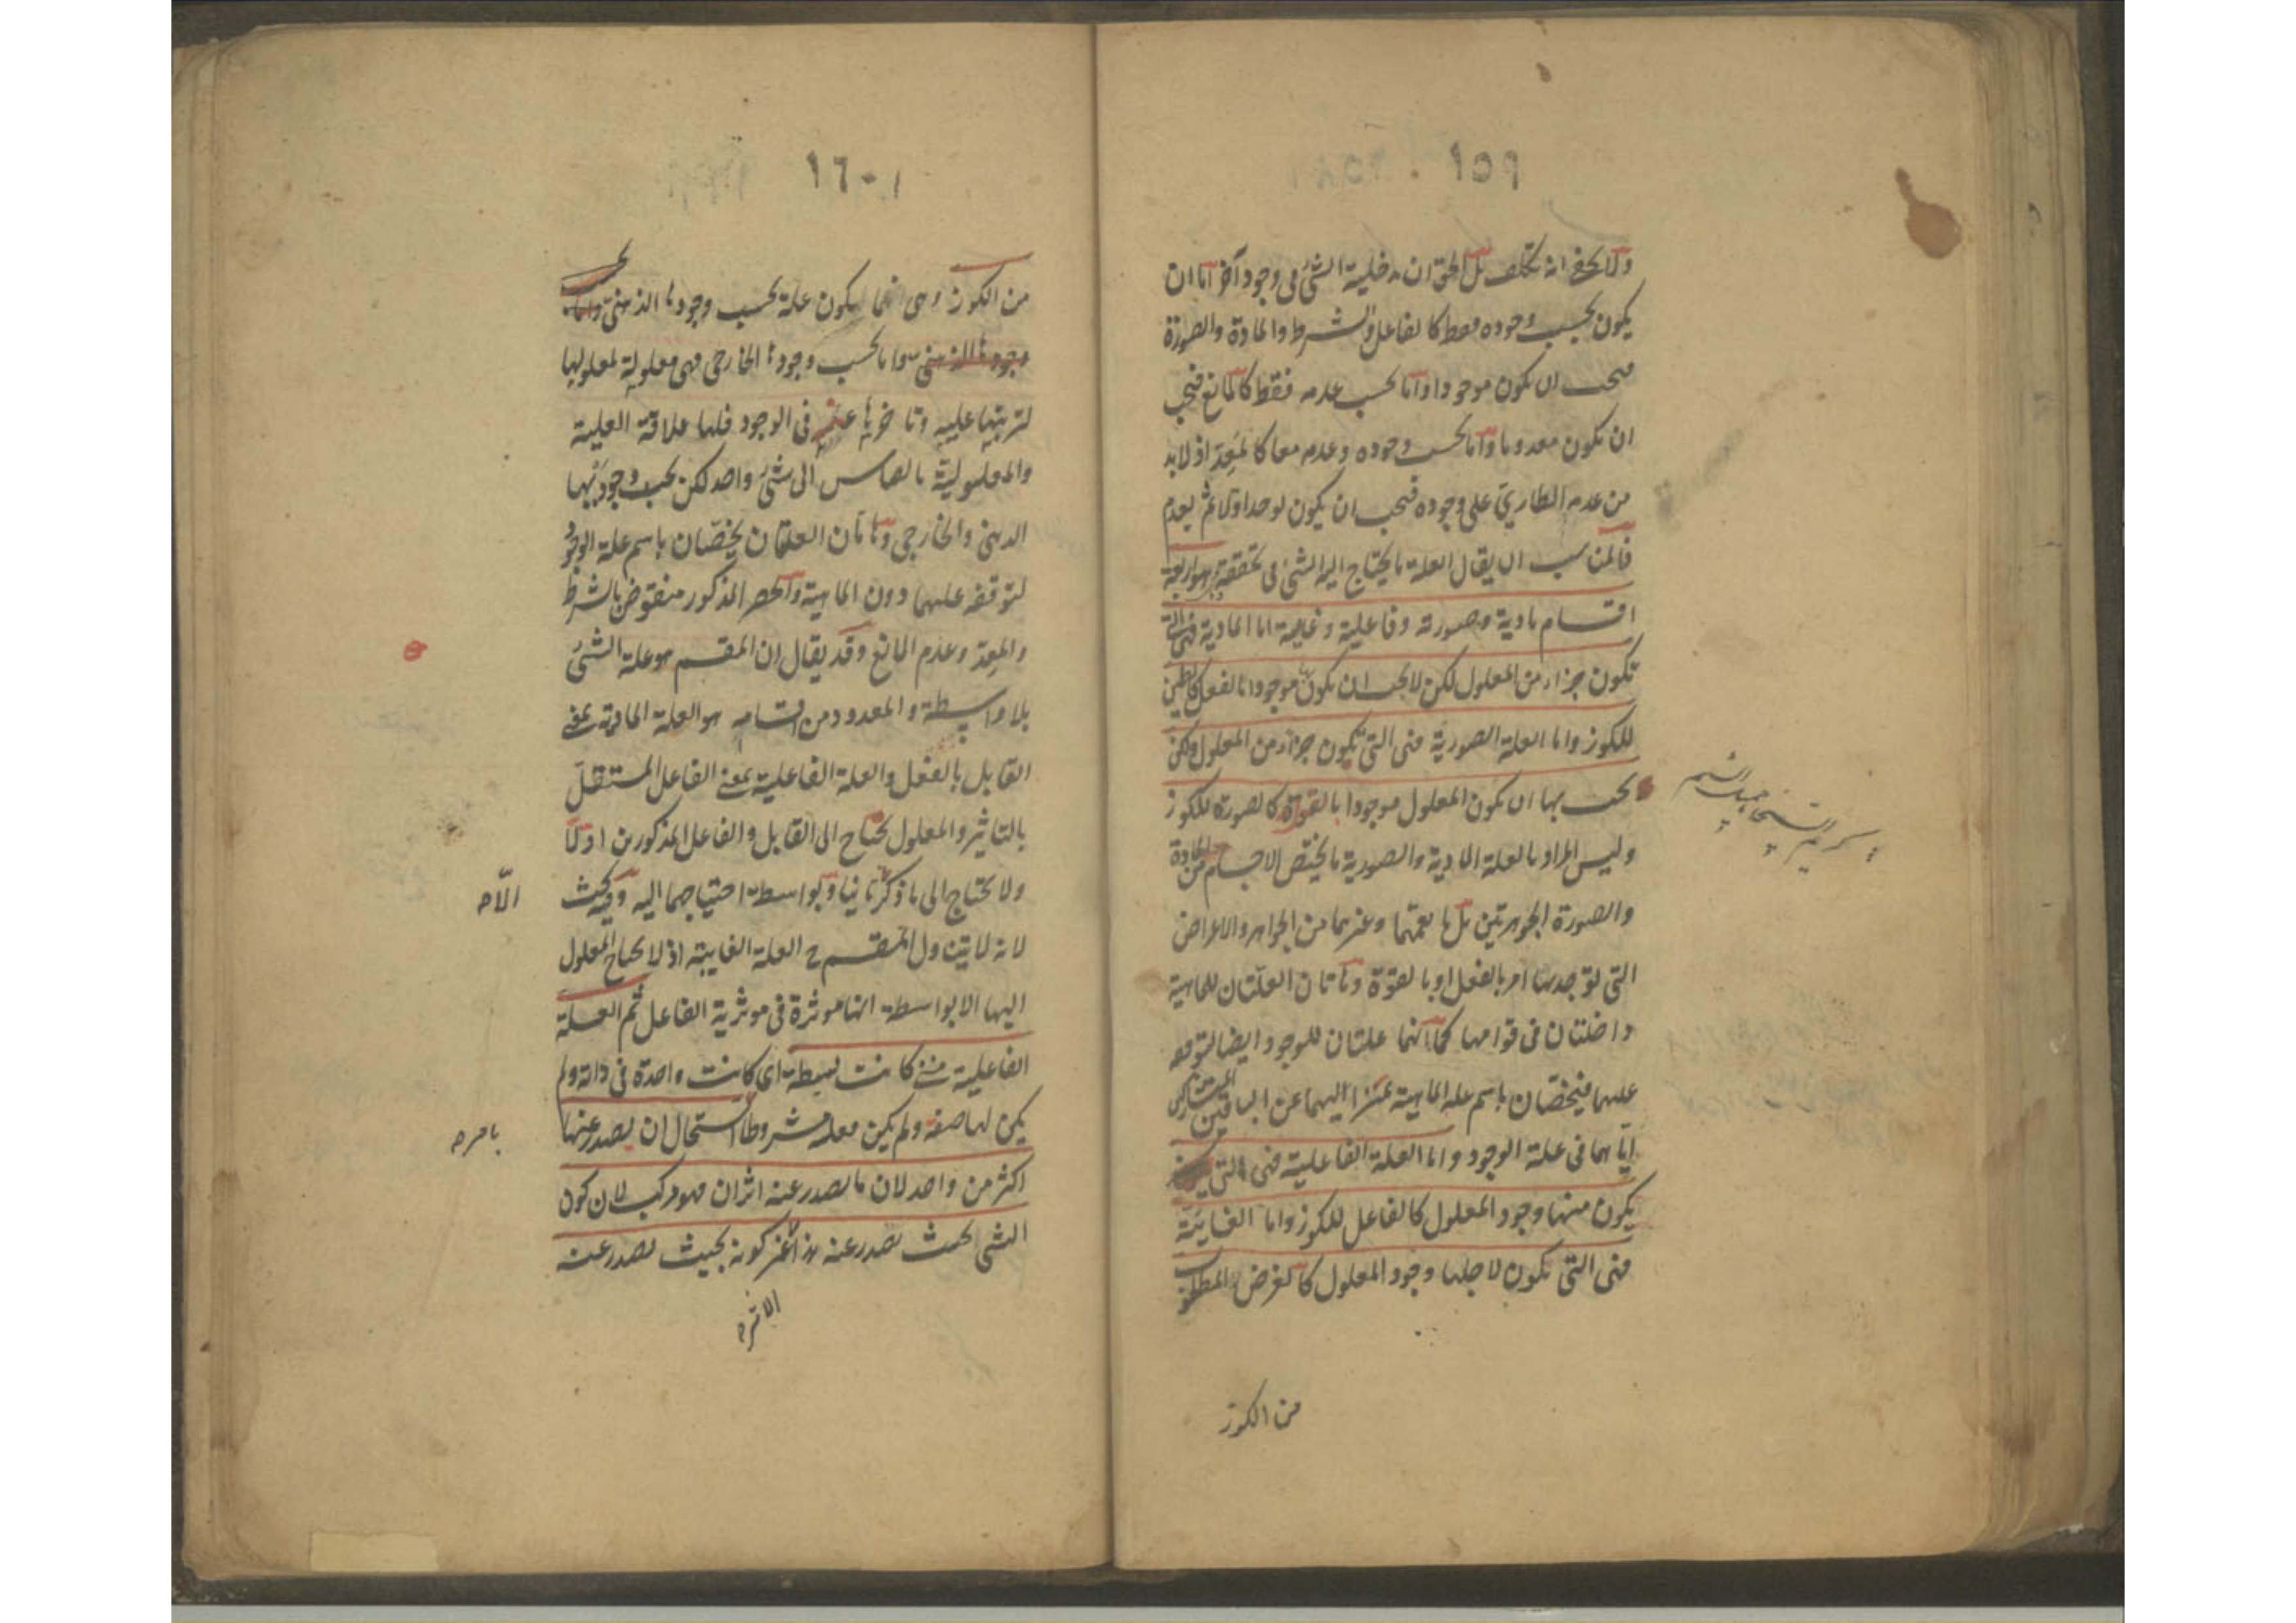 ١٥٩
ولا يخفى انه تكلف بل الحق ان مدخلية الشئ فى وجود آخر اما ان
يكون بحسب وجوده فقط كالفاعل والشرط والمادة والصورة
فيجب ان يكون موجودا واما بحسب عدمه فقط كالمانع فيجب
ان يكون معدوما واما بحسب وجوده وعدمه معا كالمعد اذ لابد
من عدمه الطارئ على وجوده فيجب ان يكون يوجد اولا ثم يعدم
فالمناسب ان يقال العلة ما يحتاج اليه الشئ فى تحققه وهو اربعة
اقسام مادية وصورية وفاعلية وغايية اما المادية فهى التى
تكون جزء من المعلول لكن لا يجب بها ان يكون موجودا بالفعل كالطين
للكوز واما العلة الصورية فهى التى تكون جزء من المعلول ولكن
يجب بها ان يكون المعلول موجودا بالقوة كالصورة للكوز
وليس المراد بالعلة المادية والصورية ما يختص الاجسام من المادة
والصورة الجوهريتين بل ما يعمهما وغيرهما من الجواهر والاعراض
التى توجد بها امر بالفعل او بالقوة وهاتان العلتان للماهية
داخلتان فى قوامها كما انهما علتان للوجود ايضا لتوقفه
عليهما فيختصان باسم علة الماهية تمييزا لهما عن الباقيتين المتشاركتين
اياهما فى علة الوجود واما العلة الفاعلية فهى التى
يكون منها وجود المعلول كالفاعل للكوز واما الغائية
فهى التى يكون لاجلها وجود المعلول كالغرض المطلوب
من الكوز
١٦٠
من الكوز وهى انما يكون علة بحسب وجودها الذهنى واما
وجودها الذهنى واما بحسب وجودها الخارجى فهى معلولة لمعلولها
لترتبها عليه وتاخرها عنه فى الوجود فلها علاقة العلية
والمعلولية بالقياس الى شئ واحد لكن بحسب وجوديها
الذهنى والخارجى وهاتان العلتان يختصان باسم علة الوجود
لتوقفه عليهما دون الماهية والحصر المذكور منقوض بالشرط
والمعد وعدم المانع وقد يقال ان المقسم هو علة الشئ
بلا واسطة والمعدود من اقسامه هو العلة المادية بمعنى
القابل بالفعل والعلة الفاعلية بمعنى الفاعل المستقل
بالتاثير والمعلول يحتاج الى القابل والفاعل المذكورين اولا
ولا يحتاج الى ما ذكر ثانيا وبواسطة احتياجهما اليه وفيه بحث
الا
لانه لا يتناول المقسم ح العلة الغايية اذ لا يحتاج المعلول
اليها الا بواسطة انها مؤثرة فى مؤثرية الفاعل ثم العلة
الفاعلية متى كانت بسيطة اى كانت واحدة فى ذاته ولم
يكن لها صفة ولم يكن معله مشروطا استحال ان يصدر عنها
بامر
اكثر من واحد لان ما يصدر عنه اثران فهو مركب لان كون
الشئ بحيث يصدر عنه هذا غير كونه بحيث يصدر عنه
الاثر